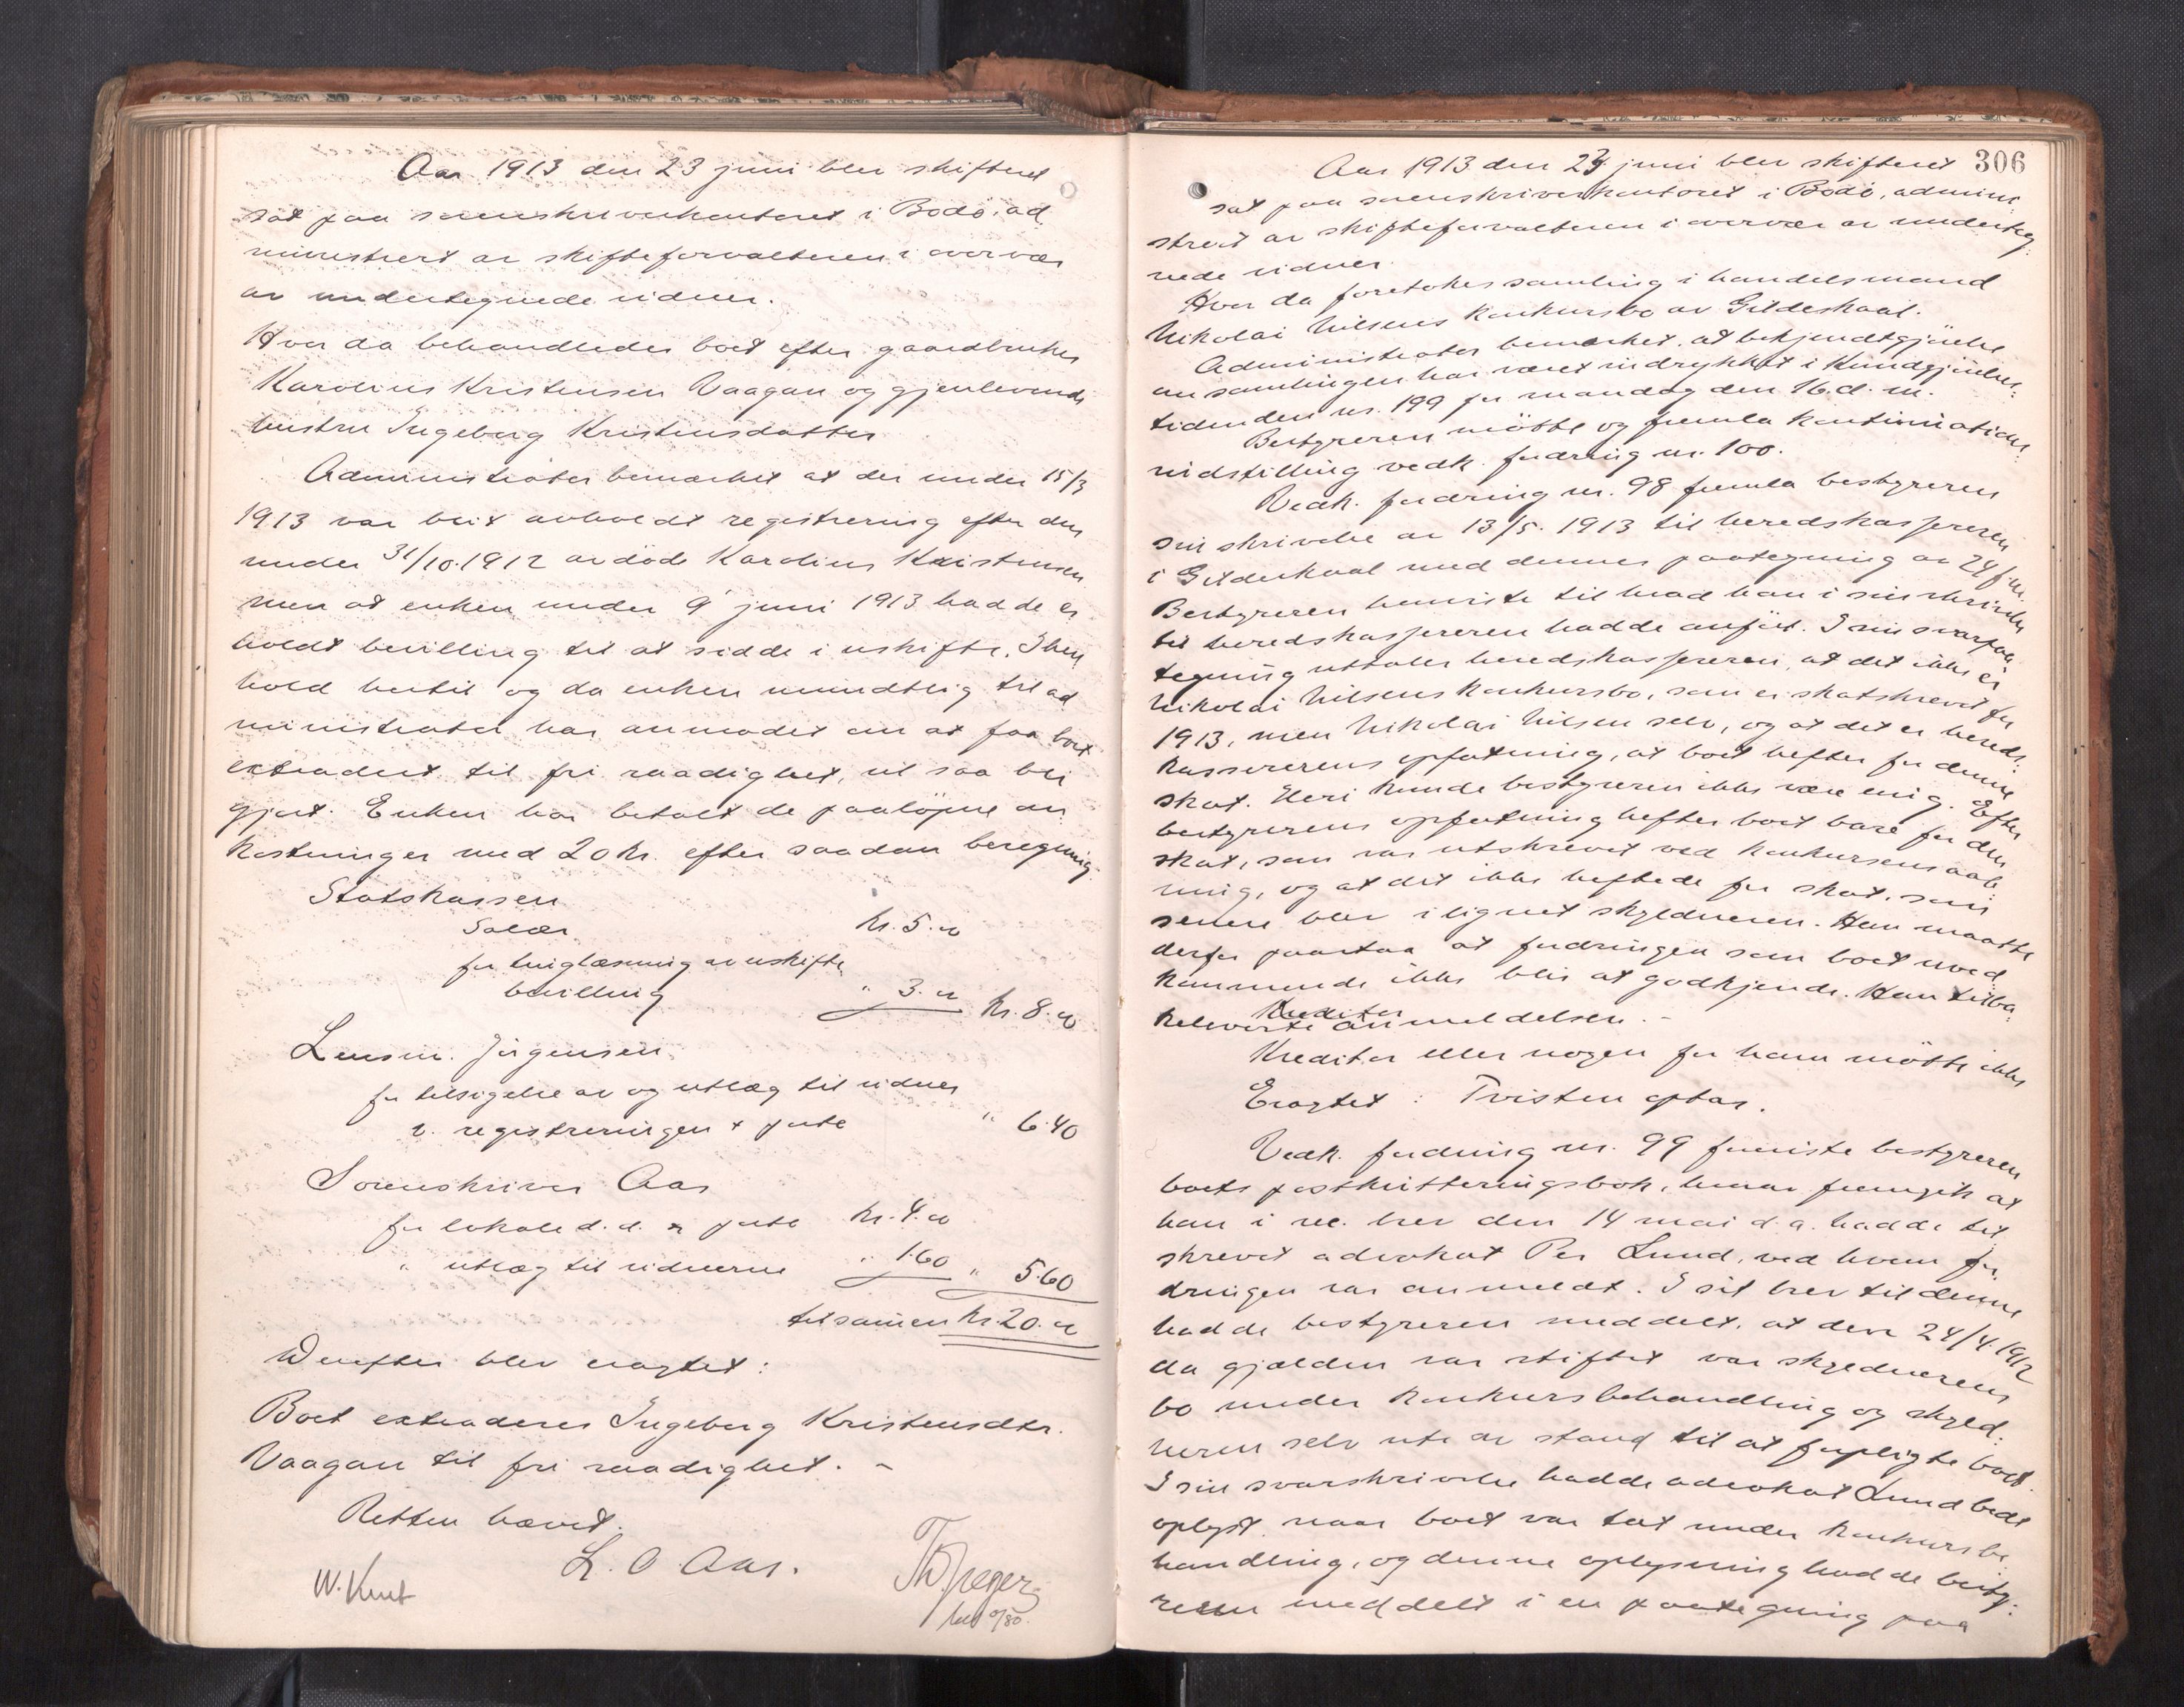 Aar 1913 den 23 juni blev skifteret
sat paa sorenskriverkontoret i Bodø, ad
ministrert av skifteforvalteren i overvær
av undertegnede vidner.
Hvor da behandledes boet efter gaardbruker
Karolius Kristensen Vaagan og gjenlevende
hustru Ingeborg Kristensdatter
Administrator bemærket at der under 15/3
1913 var blit avholdt registrering efter den
under 31/10.1912 avdøde Karolius Kristensen
men at enken under 9 juni 1913 hadde er
holdt bevilling til at sidde i uskifte. I hen
hold hertil og da enken mundtlig til ad
ministrator har anmodet om at faa boet
extradert til fri raadighet, vil saa bli
gjort. Enken har betalt de paaløpne om
kostninger med 20 kr. efter saadan beregning:
Statskassen
Salær kr. 5.00
for tinglæsning av uskifte
bevilling " 3.00 kr. 8.00
Lensm. Jørgensen
for tilsigelse av og utlæg til vidner
v. registreringen + porto " 6.40
Sorenskriver Aas
for lokale d.d. + porto kr. 4.00
" utlæg til vidnerne " 1.60 " 5.60
tilsammen kr. 20.00
Derefter blev eragtet:
Boet extraderes Ingeborg Kristensdtr.
Vaagan til fri raadighet. -
Retten hævet.
L. O. Aas.
W. Knut
306
Aar 1913 den 24 juni blev skifteret
sat paa sorenskriverkontoret i Bodø, admini:
strert av skifteforvalteren i overvær av underteg:
nede vidner.
Hvor da foretokes samling i handelsmand
Nikolai Nilsens konkursbo av Gildeskaal.
Administrator bemerket, at bekjendtgjørelse
om samlingen har været indrykket i Kundgjørelses:
tidenden nr. 199 for mandag den 16. d. m.
Bestyreren møtte og fremla kontinuations
indstilling vedk. fordring nr. 100.
Vedk. fordring nr. 98 fremla bestyreren
sin skrivelse av 13/5. 1913 til herredskassereren
i Gildeskaal med dennes paategning av 24/
Bestyreren henviste til hvad han i sin skrivelse
til herredskassereren hadde anført. I sin svarpaa
tegning uttaler herredskassereren, at det ikke er
Nikolai Nilsens konkursbo, som er skatskrevet for
1913, men Nikolai Nilsen selv, og at det er herreds:
kassererens opfatning, at boet hefter for denne
skat. Heri kunde bestyreren ikke være enig. Efter
bestyrerens opfatning hefter boet bare for den
skat, som var utskrevet ved konkursens aab:
ning, og at det ikke heftede for skat, som
senere blev ilignet skyldneren. Han maatte
derfor paastaa at fordringen som boet uved
kommende ikke blir at godkjende. Han tilba:
Kreditor
keleverte anmeldelsen. -
Kreditor eller nogen for ham møtte ikke
Eragtet: Tvisten optas.
Vedk. fordring nr. 99 fremviste bestyreren
boets postkvitteringsbok, hvorav fremgik at
han i rec. brev den 14 mai d. a. hadde til
skrevet advokat Per Lund, ved hvem for
dringen var anmeldt. I sit brev til denne
hadde bestyreren meddelt, at den 24/4. 1912
da gjælden var stiftet var skyldnerens
bo under konkursbehandling og skyld:
neren selv ute av stand til at forpligte boet.
I sin svarskrivelse hadde advokat Lund bedt
oplyst, naar boet var tat under konkursbe
handling, og denne oplysning hadde besty:
reren meddelt i en paategning paa